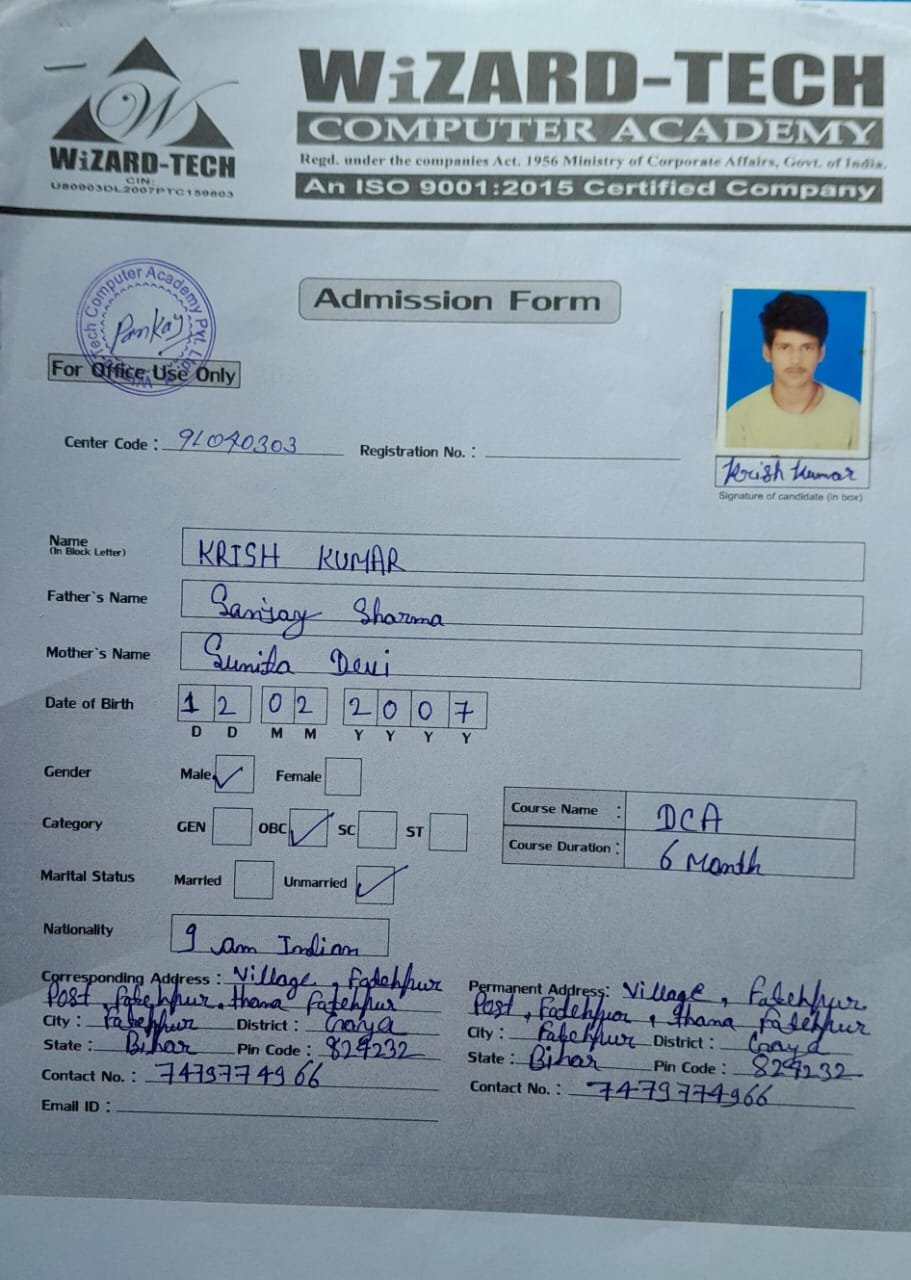 WiZARD-TECH
CIN:
U80903DL2007PTC159803
WiZARD-TECH
COMPUTER ACADEMY
Regd. under the companies Act. 1956 Ministry of Corporate Affairs, Govt. of India.
An ISO 9001:2015 Certified Company
Tech Computer Academy Pvt. Ltd.
Pankaj
Admission Form
For Office Use Only
Center Code : 91040303
Registration No. :
Krish Kumar
Signature of candidate (in box)
Name KRISH KUMAR
(In Block Letter)
Father`s Name Sanjay Sharma
Mother`s Name Sunita Devi
Date of Birth 12 02 2007
D D M M Y Y Y Y
Gender Male ✓ Female
Category GEN OBC ✓ SC ST
Course Name : DCA
Course Duration : 6 Month
Marital Status Married Unmarried ✓
Nationality I am Indian
Corresponding Address : Village, Fatehpur
Post, Fatehpur, thana Fatehpur
City : Fatehpur District : Gaya
State : Bihar Pin Code : 824232
Contact No. : 7479774966
Email ID :
Permanent Address: Village, Fatehpur
Post, Fatehpur, thana Fatehpur
City : Fatehpur District : Gaya
State : Bihar Pin Code : 824232
Contact No. : 7479774966